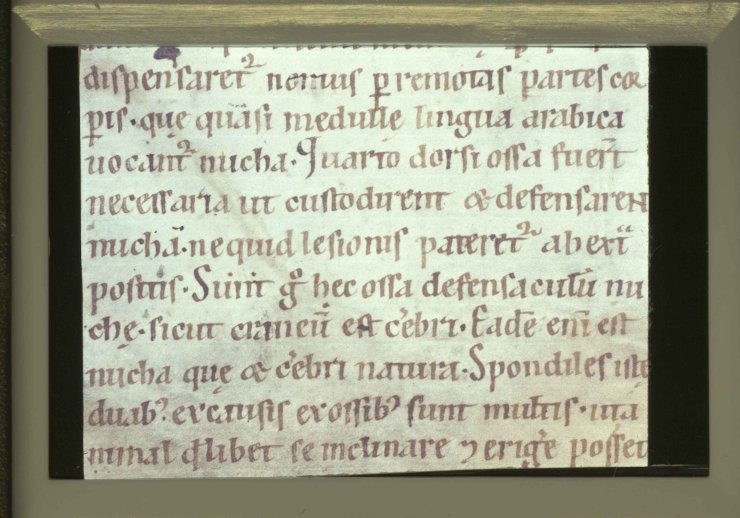 dispensaret᷑ neruis ꝑ remotas partes cor
ꝑis · quę quasi medulle lingua arabica
uocant᷑ nucha · Quarto dorsi ossa fuer̄t
necessaria ut custodirent & defensarent
nuchā · ne quid lesionis pateret᷑ ab extͥ
positis · Sunt gͦ hec ossa defensaculū nu
chę · sicut craneū est c̄ebri · Eadē eni̅ est
nucha quę & c̄ebri natura · Spondiles iste
duabꝫ ex causis ex ossibꝫ sunt multis · ut a
nimal qd̄libet se inclinare ⁊ erig̅e posset